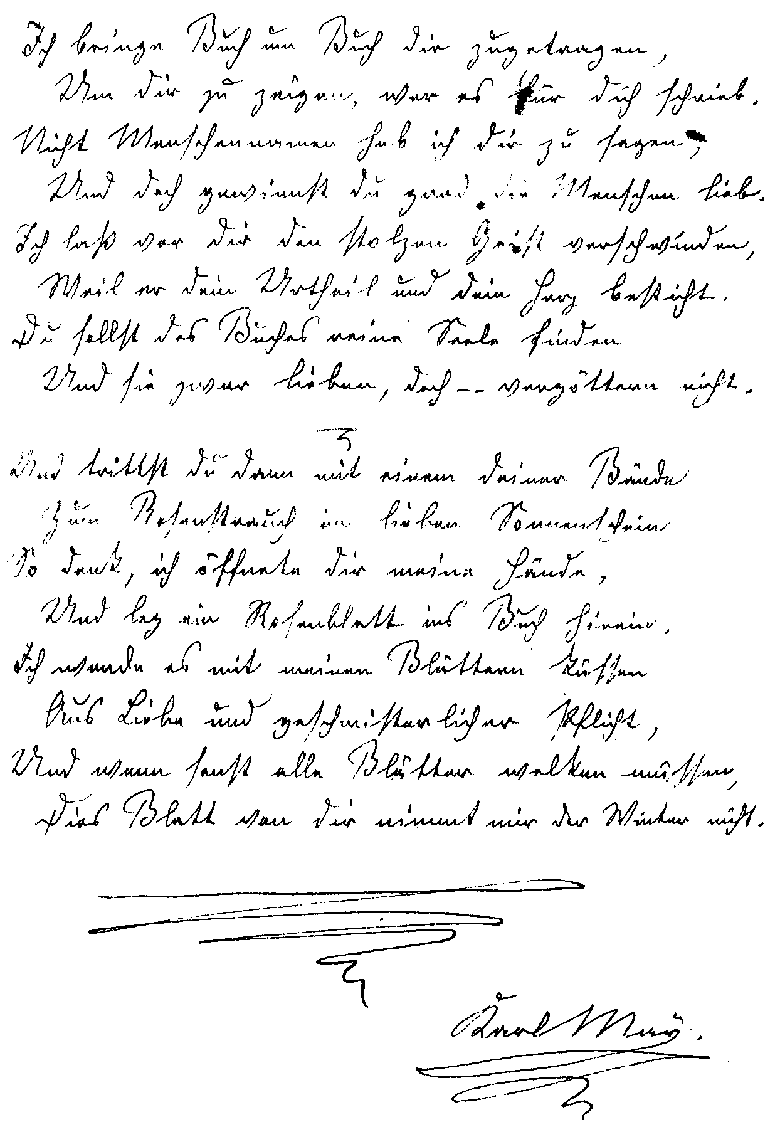 Ich bringe Buch um Buch dir zugetragen,
Um dir zu zeigen, wer es für dich schrieb.
Nicht Menschennamen hab ich dir zu sagen,
Und doch gewinnst du grad die Menschen lieb.
Ich laß vor dir den stolzen Geist verschwinden,
Weil er dein Urtheil und dein Herz besticht.
Du sollst des Buches reine Seele finden
Und sie zwar lieben, doch -- vergöttern nicht.
Und trittst du dann mit einem deiner Bände
Zum Rosenstrauch im lieben Sonnenschein
So denk, ich öffnete dir meine Hände,
Und leg ein Rosenblatt ins Buch hinein.
Ich werde es mit meinen Blättern küssen
Aus Liebe und geschwisterlicher Pflicht,
Und wenn sonst alle Blätter welken müssen,
Dies Blatt von dir nimmt mir der Winter nicht.
Karl May.